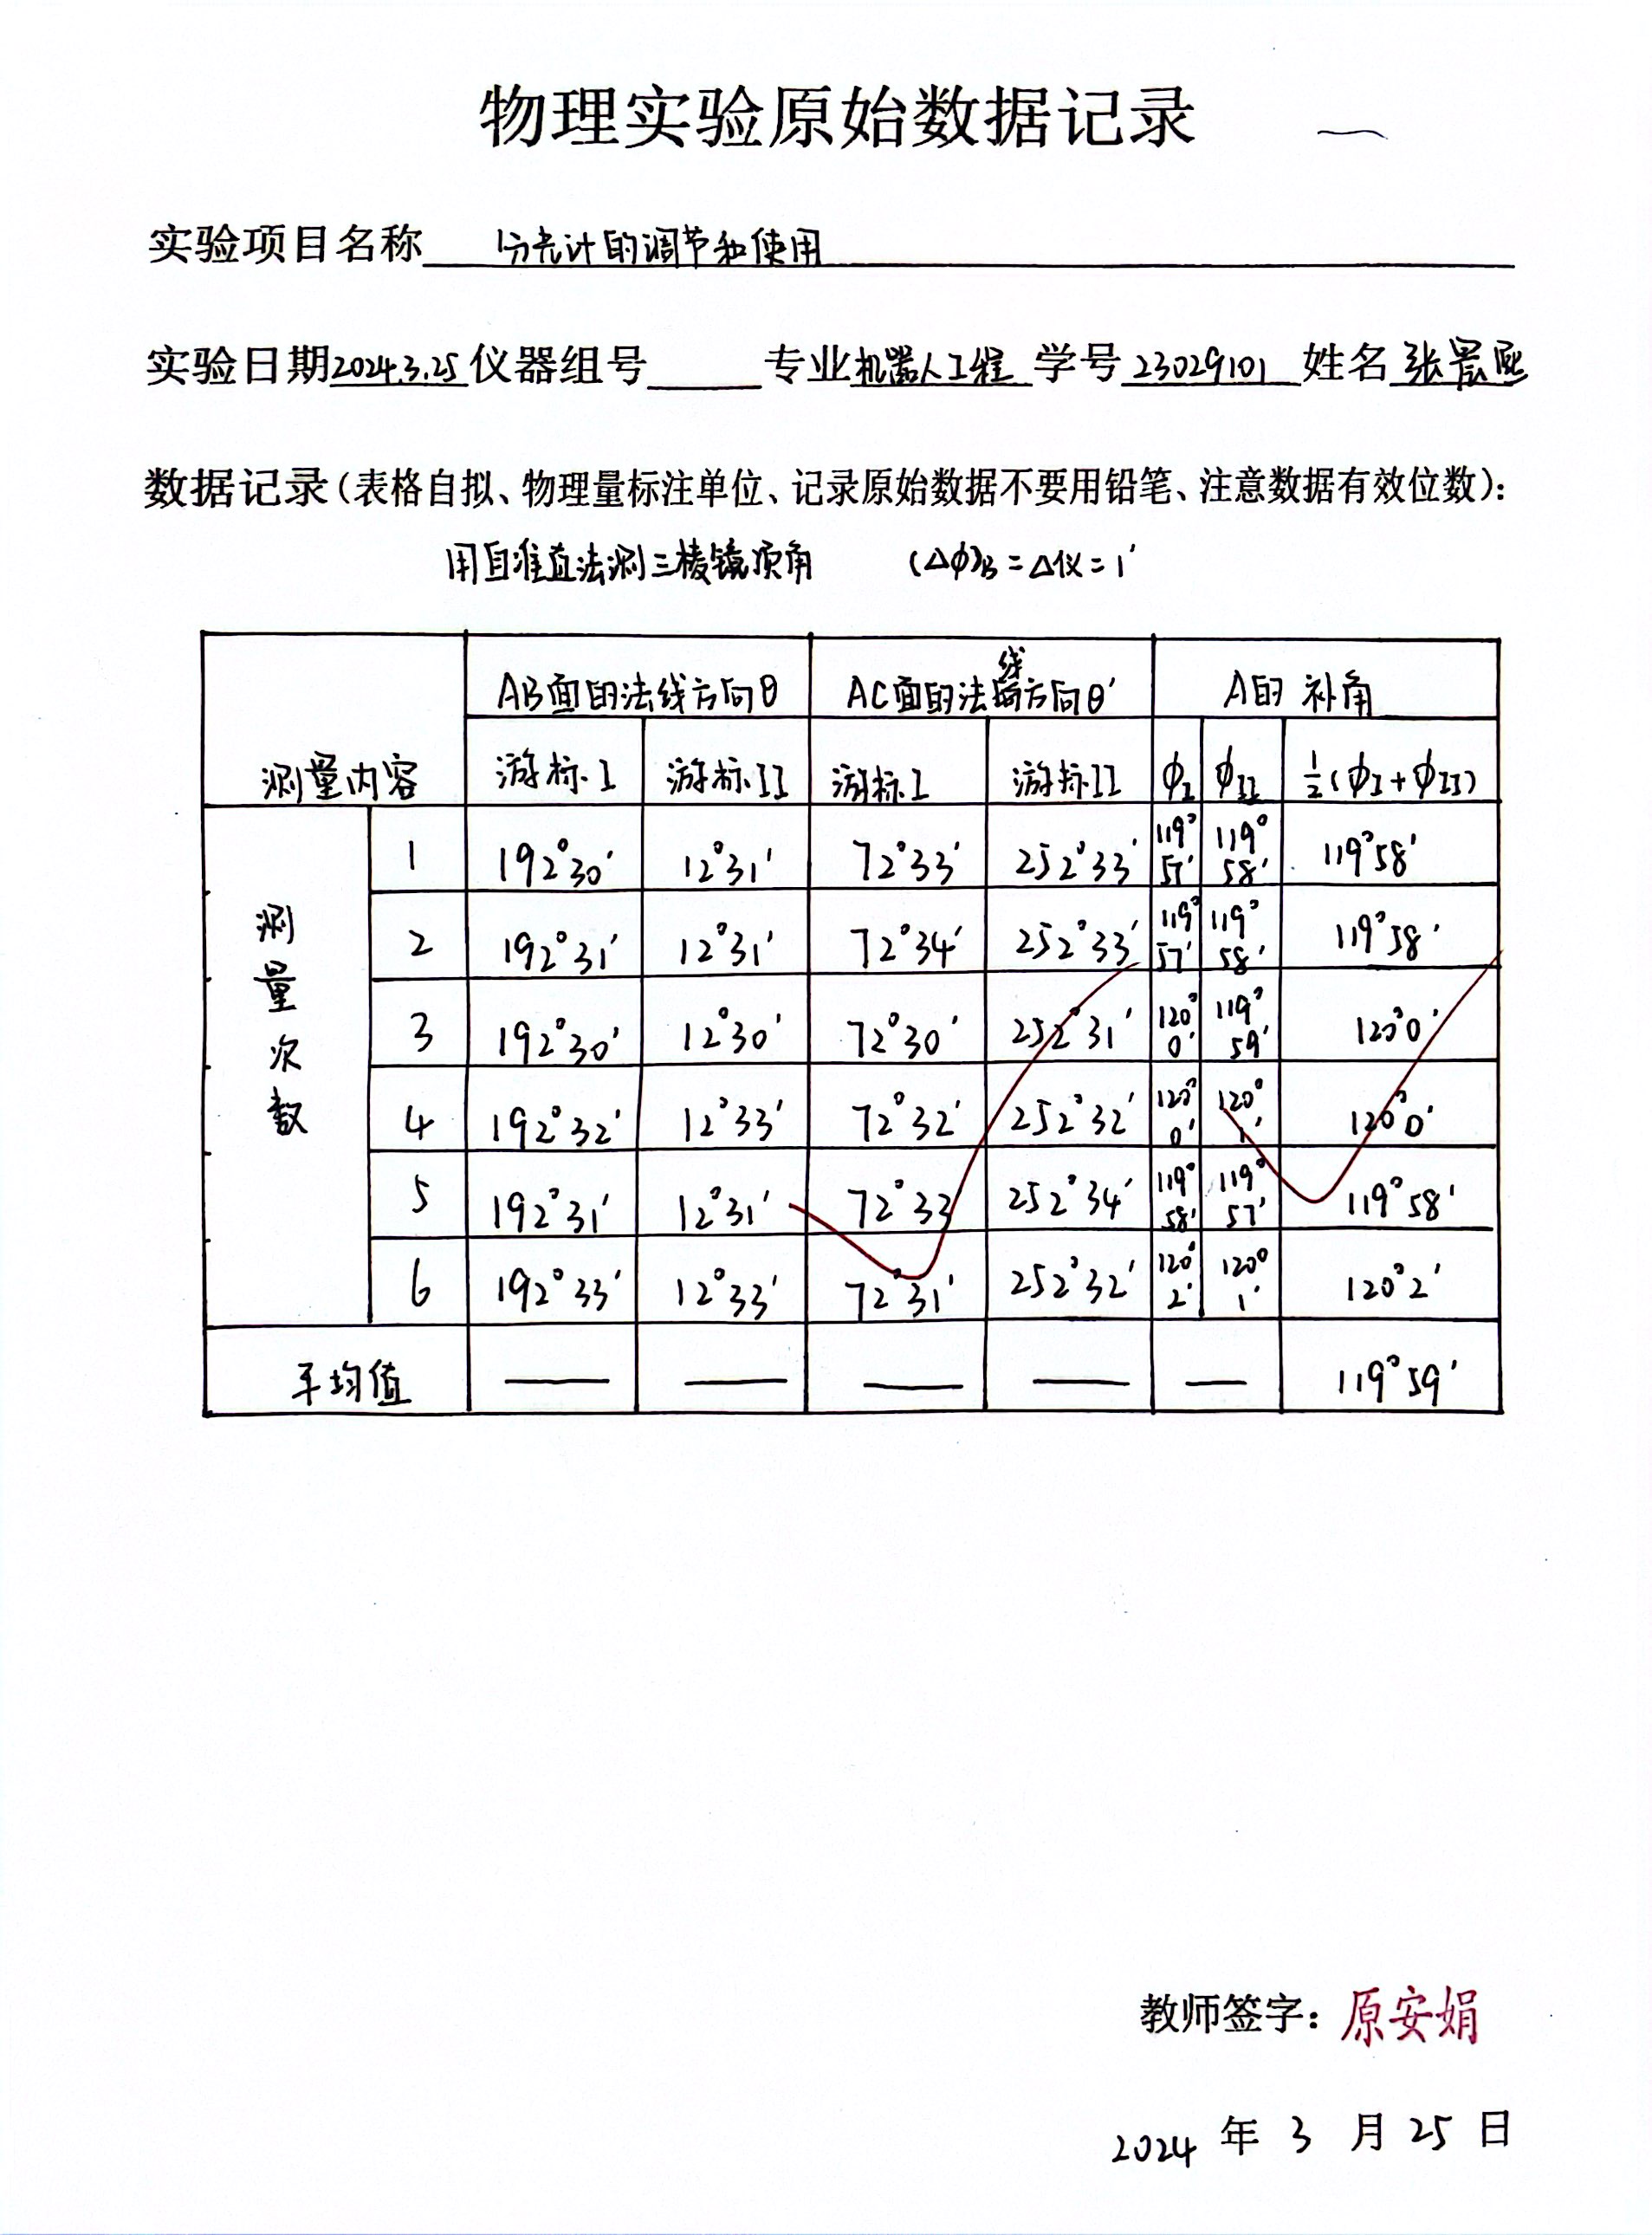 物理实验原始数据记录
实验项目名称 分光计的调节和使用
实验日期 2024.3.25 仪器组号 专业 机器人工程 学号 23029101 姓名 张晨熙
数据记录(表格自拟、物理量标注单位、记录原始数据不要用铅笔、注意数据有效位数):
用自准直法测三棱镜顶角 (Δφ)B = Δ仪 = 1′
测量内容 AB面的法线方向θ AC面的法线方向θ′ A的 补角
游标I 游标II 游标I 游标II φI φII ½(φI+φII)
测量次数
1 192°30′ 12°31′ 72°33′ 252°33′ 119°57′ 119°58′ 119°58′
2 192°31′ 12°31′ 72°34′ 252°33′ 119°57′ 119°58′ 119°58′
3 192°30′ 12°30′ 72°30′ 252°31′ 120°0′ 119°59′ 120°0′
4 192°32′ 12°33′ 72°32′ 252°32′ 120°0′ 120°1′ 120°0′
5 192°31′ 12°31′ 72°33′ 252°34′ 119°58′ 119°57′ 119°58′
6 192°33′ 12°33′ 72°31′ 252°32′ 120°2′ 120°1′ 120°2′
平均值 — — — — — 119°59′
教师签字: 原安娟
2024 年 3 月 25 日